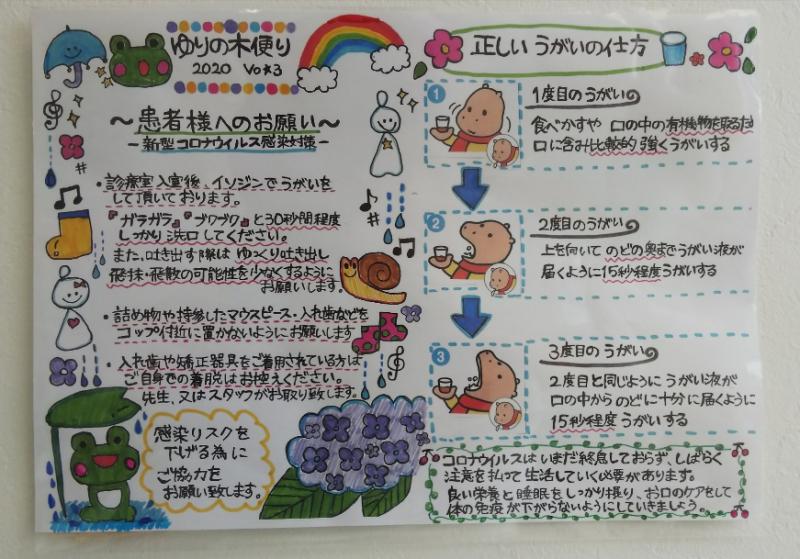 ゆりの木便り
2020 Vo★3
～患者様へのお願い～
-新型コロナウイルス感染対策-
・診療室入室後、イソジンでうがいを
して頂いております。
『ガラガラ』『ブクブク』と30秒間程度
しっかり洗口してください。
また、吐き出す際はゆっくり吐き出し
飛沫・飛散の可能性を少なくするように
お願いします。
・詰め物や持参したマウスピース・入れ歯などを
コップ付近に置かないようにお願いします
・入れ歯や矯正器具をご着用されている方は
ご自身での着脱はお控えください。
先生、又はスタッフがお取り致します。
感染リスクを
下げる為に
ご協力を
お願い致します。
正しいうがいの仕方
1
1度目のうがい
食べかすや 口の中の有機物を取るため
口に含み比較的強くうがいする
2
2度目のうがい
上を向いて のどの奥までうがい液が
届くように15秒程度うがいする
3
3度目のうがい
2度目と同じように うがい液が
口の中から のどに十分に届くように
15秒程度 うがいする
コロナウイルスはいまだ終息しておらず、しばらく
注意を払って生活していく必要があります。
良い栄養と睡眠をしっかり摂り、お口のケアをして
体の免疫が下がらないようにしていきましょう。